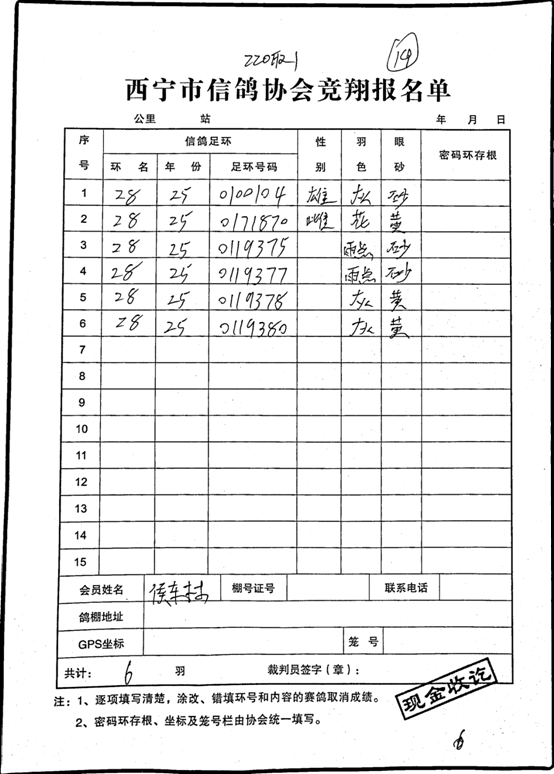 220取1 14
西宁市信鸽协会竞翔报名单
公里 站 年 月 日
序号 信鸽足环 性别 羽色 眼砂 密码环存根
环 名 年 份 足环号码
1 28 25 0100104 雄 灰 砂
2 28 25 0171870 雌 花 黄
3 28 25 0119375 雨点 砂
4 28 25 0119377 雨点 砂
5 28 25 0119378 灰 黄
6 28 25 0119380 灰 黄
7
8
9
10
11
12
13
14
15
会员姓名 侯东林 棚号证号 联系电话
鸽棚地址
GPS坐标 笼 号
共计: 6 羽 裁判员签字(章):
现金收讫
注:1、逐项填写清楚,涂改、错填环号和内容的赛鸽取消成绩。
2、密码环存根、坐标及笼号栏由协会统一填写。
6